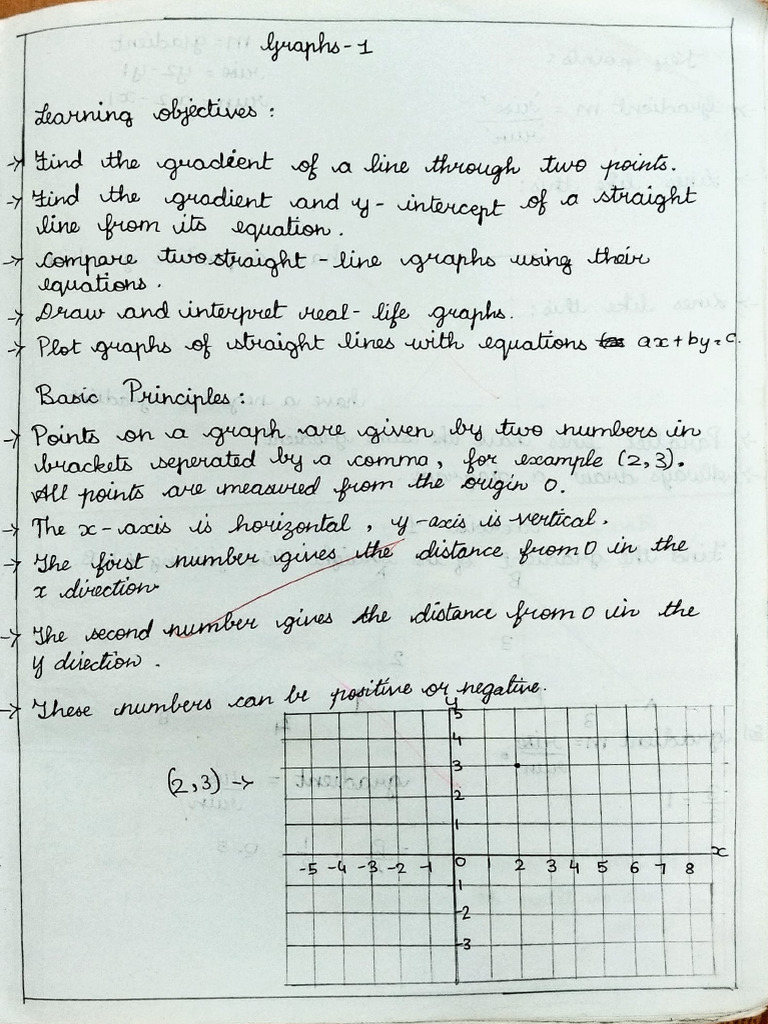 Graphs-1
Learning objectives :
→ Find the gradient of a line through two points.
→ Find the gradient and y- intercept of a straight
line from its equation.
→ Compare two straight-line graphs using their
equations.
→ Draw and interpret real-life graphs.
→ Plot graphs of straight lines with equations ax+by=c.
Basic Principles :
→ Points on a graph are given by two numbers in
brackets seperated by a comma, for example (2,3).
All points are measured from the origin 0.
→ The x-axis is horizontal, y-axis is vertical.
→ The first number gives the distance from 0 in the
x direction
→ The second number gives the distance from 0 in the
y direction.
→ These numbers can be positive or negative.
y
5
4
(2,3) → 3
2
1
x
-5 -4 -3 -2 -1 0 2 3 4 5 6 7 8
1
-2
-3